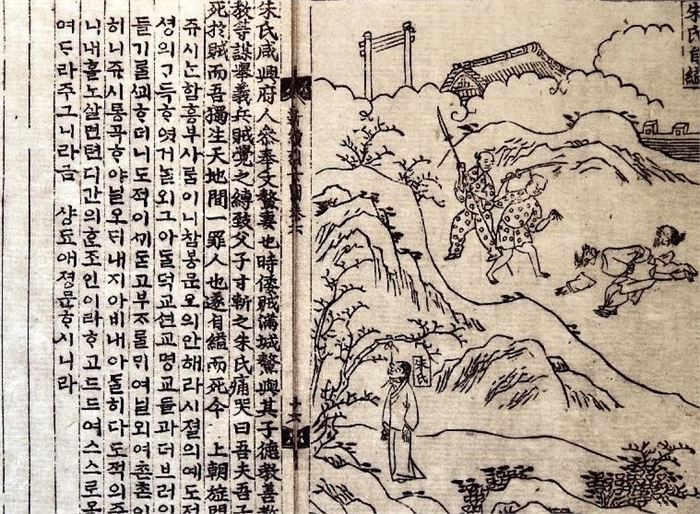 朱氏自縊
朱氏
新續烈女圖卷六
十六
朱氏咸興府人叅奉文鰲妻也時倭賊滿城鰲與其子德教善教
教等謀舉義兵賊覺之縛致父子寸斬之朱氏痛哭曰吾夫吾子
死於賊而吾獨生天地間一罪人也遂自縊而死今 上朝旌門
쥬시ᄂᆞᆫ함흥부사ᄅᆞᆷ이니참봉문오의안해라시졀의예도적
셩의ᄀᆞ득ᄒᆞ엿거ᄂᆞᆯ외그아ᄃᆞᆯ덕교션교명교들과더브러의
들기ᄅᆞᆯᄭᅬᄒᆞ더니도적이ᄭᆡᄃᆞᆮ고부ᄌᆞᄅᆞᆯᄆᆡ여닐외여촌촌이
히니쥬시통곡ᄒᆞ야ᄀᆞᆯ오ᄃᆡ내지아비내아ᄃᆞᆯ히다도적의주
니내홀노살면텬디간의ᄒᆞᆫ죄인이라ᄒᆞ고드드여스스로목
여ᄃᆞ라주그니라금 샹됴애졍문ᄒᆞ시니라